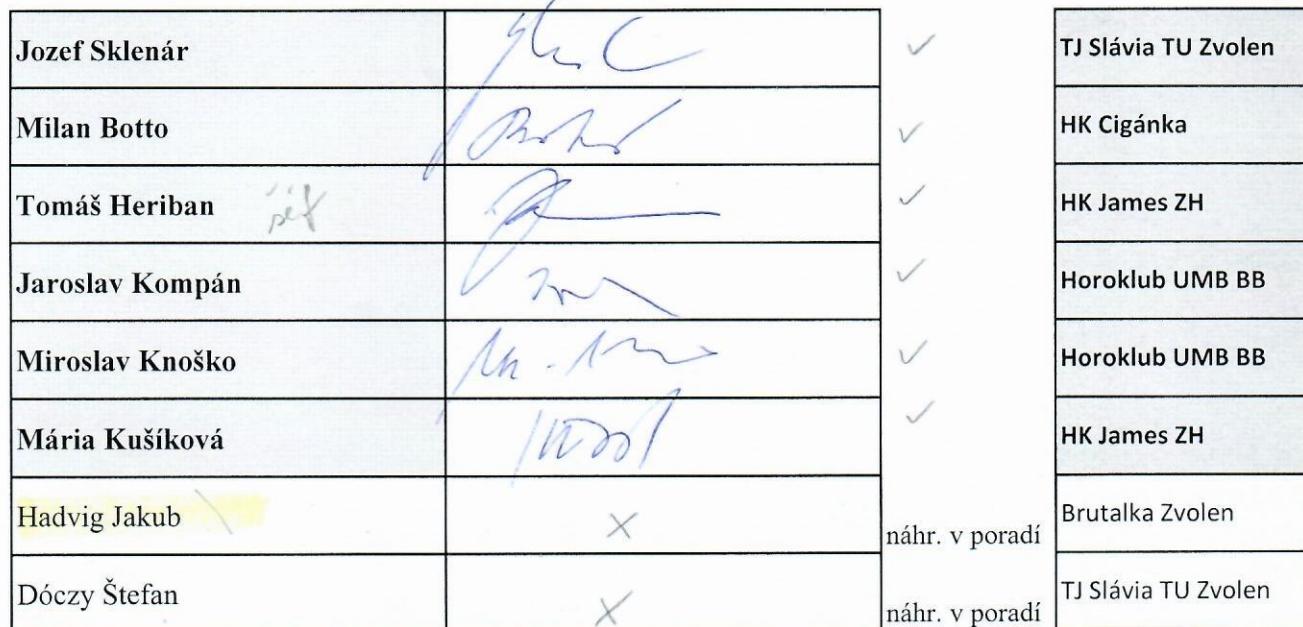 Jozef Sklenár ✓ TJ Slávia TU Zvolen
Milan Botto ✓ HK Cigánka
Tomáš Heriban ✓ HK James ZH
Jaroslav Kompán ✓ Horoklub UMB BB
Miroslav Knoško ✓ Horoklub UMB BB
Mária Kušíková ✓ HK James ZH
Hadvig Jakub X náhr. v poradí Brutalka Zvolen
Dóczy Štefan X náhr. v poradí TJ Slávia TU Zvolen